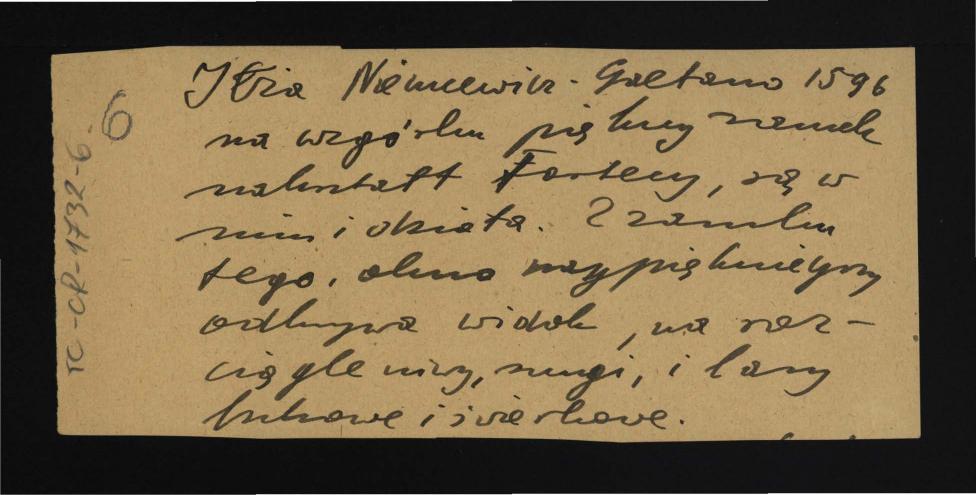 6
TC-CR-1732-6
Iłża Niemcewicz - Gaetano 1596
na wzgórku piękny zamek
nakształt Fortecy, są w
nim i działa. Z zamku
tego, okno najpiękniejszy
odkrywa widok, na roz-
ciągłe niwy, smugi, i lasy
bukowe i świerkowe.